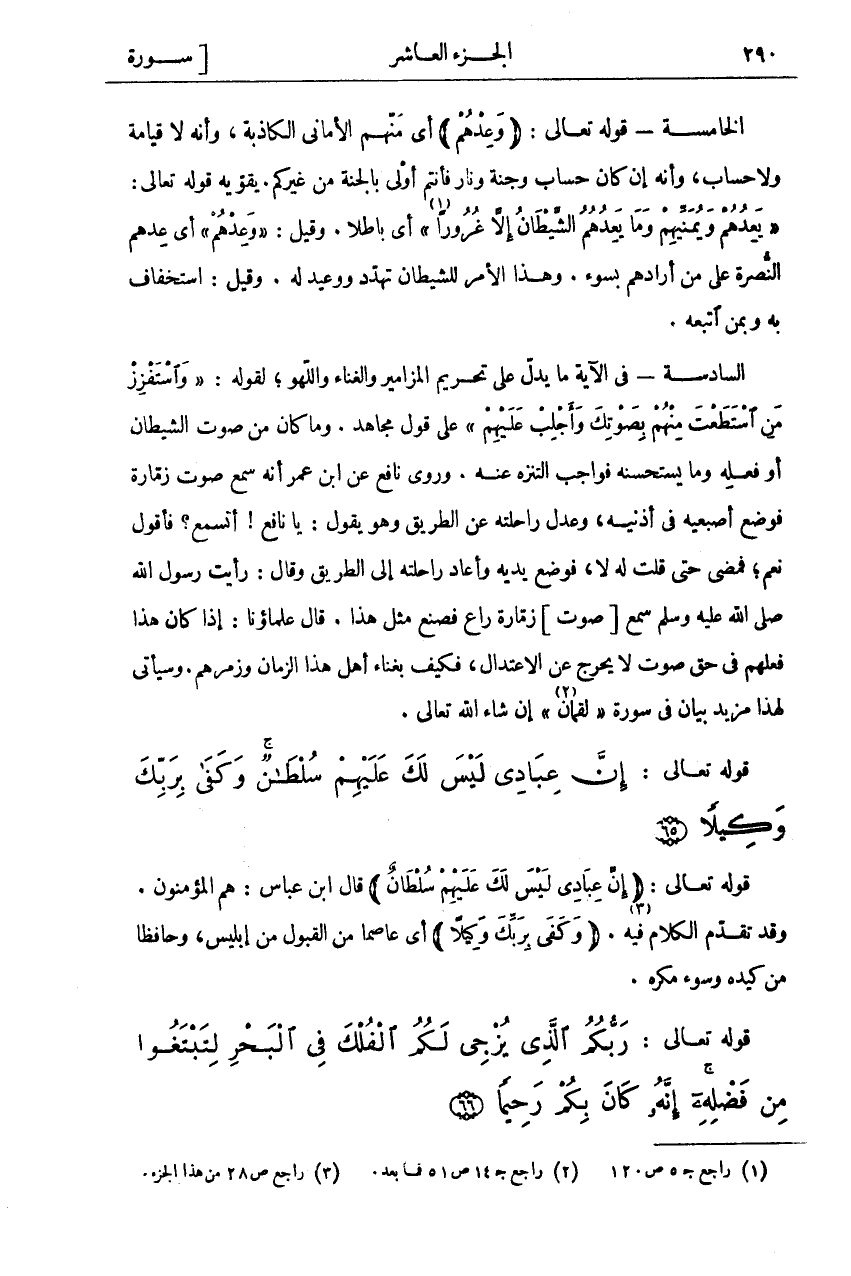 ٢٩٠ الجزء العاشر [ سورة
الخامسة – قوله تعالى : ﴿ وَعِدْهُمْ ﴾ أى مَنّهم الأمانى الكاذبة ، وأنه لا قيامة
ولا حساب، وأنه إن كان حساب وجنة ونار فأنتم أَوْلَى بالجنة من غيركم. يقوّيه قوله تعالى:
« يَعِدُهُمْ وَيُمَنِّيهِمْ وَمَا يَعِدُهُمُ الشَّيْطَانُ إِلَّا غُرُورًا (١) » أى باطلا . وقيل : «وَعِدْهُمْ» أى عِدهم
النُّصرة على من أرادهم بسوء . وهذا الأمر للشيطان تهدّد ووعيد له . وقيل : استخفاف
به وبمن ٱتبعه .
السادسة – فى الآية ما يدلّ على تحريم المزامير والغناء واللّهو ؛ لقوله : « وَٱسْتَفْزِزْ
مَنِ ٱسْتَطَعْتَ مِنْهُمْ بِصَوْتِكَ وَأَجْلِبْ عَلَيْهِمْ » على قول مجاهد . وما كان من صوت الشيطان
أو فعله وما يستحسنه فواجب التنزه عنه . وروى نافع عن ابن عمر أنه سمع صوت زمّارة
فوضع أصبعيه فى أذنيه، وعدل راحلته عن الطريق وهو يقول : يا نافع ! أتسمع؟ فأقول
نعم؛ فمضى حتى قلت له لا، فوضع يديه وأعاد راحلته إلى الطريق وقال : رأيت رسول الله
صلى الله عليه وسلم سمع [ صوت ] زمّارة راع فصنع مثل هذا . قال علماؤنا : إذا كان هذا
فعلهم فى حق صوت لا يخرج عن الاعتدال، فكيف بغناء أهل هذا الزمان وزمرهم. وسيأتى
لهذا مزيد بيان فى سورة « لقمان (٢) » إن شاء الله تعالى .
قوله تعالى : إِنَّ عِبَادِى لَيْسَ لَكَ عَلَيْهِمْ سُلْطَـٰنٌ ۚ وَكَفَىٰ بِرَبِّكَ
وَكِيلًا ﴿٦٥﴾
قوله تعالى : ﴿ إِنَّ عِبَادِى لَيْسَ لَكَ عَلَيْهِمْ سُلْطَانٌ ﴾ قال ابن عباس : هم المؤمنون .
وقد تقدّم الكلام فيه (٣) . ﴿ وَكَفَى بِرَبِّكَ وَكِيلًا ﴾ أى عاصما من القبول من إبليس، وحافظا
من كيده وسوء مكره .
قوله تعالى : رَبُّكُمُ ٱلَّذِى يُزْجِى لَكُمُ ٱلْفُلْكَ فِى ٱلْبَحْرِ لِتَبْتَغُوا
مِن فَضْلِهِۦٓ ۚ إِنَّهُۥ كَانَ بِكُمْ رَحِيمًا ﴿٦٦﴾
(١) راجع جـ ٥ ص ١٢٠ (٢) راجع جـ ١٤ ص ٥١ فما بعد. (٣) راجع ص ٢٨ من هذا الجزء.